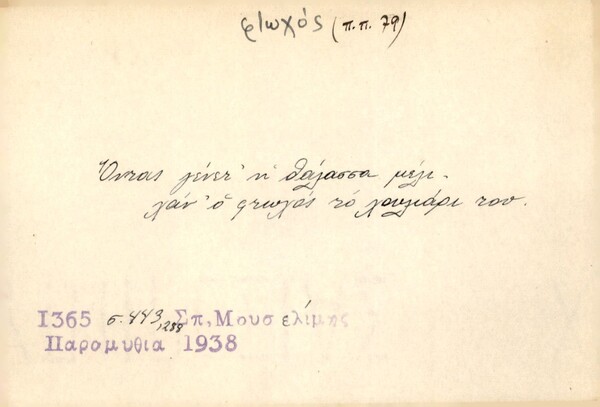 φτωχός (π.π. 79)
Όντας γένετ' η θάλασσα μέλι.
χάν' ο φτωχός το χουλιάρι του.
1365 σ. 443, 1288 Σπ, Μουσελίμης
Παρομυθια 1938